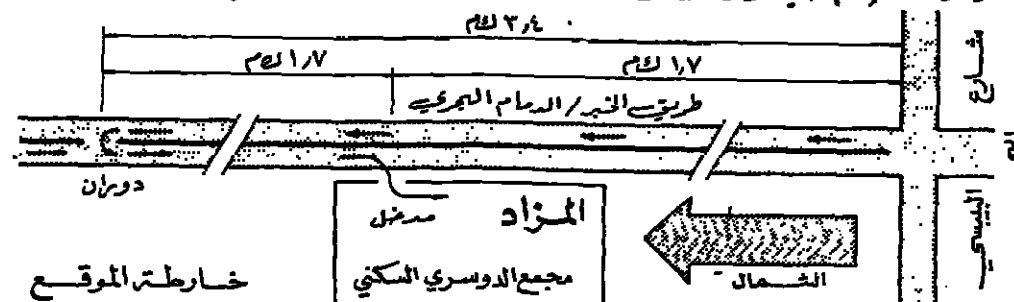 ٣٫٤٠ كم
١٫٧ كم
١٫٧ كم
طريق الخبر / الدمام البحري
شارع
البيبسي
دوران
المزاد
مدخل
مجمع الدوسري السكني
الشمال
خارطة الموقع